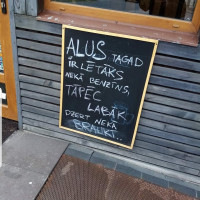 ALUS TAGAD
IR LĒTĀKS
NEKĀ BENZĪNS,
TĀPĒC
LABĀK
DZERT NEKĀ
BRAUKT..